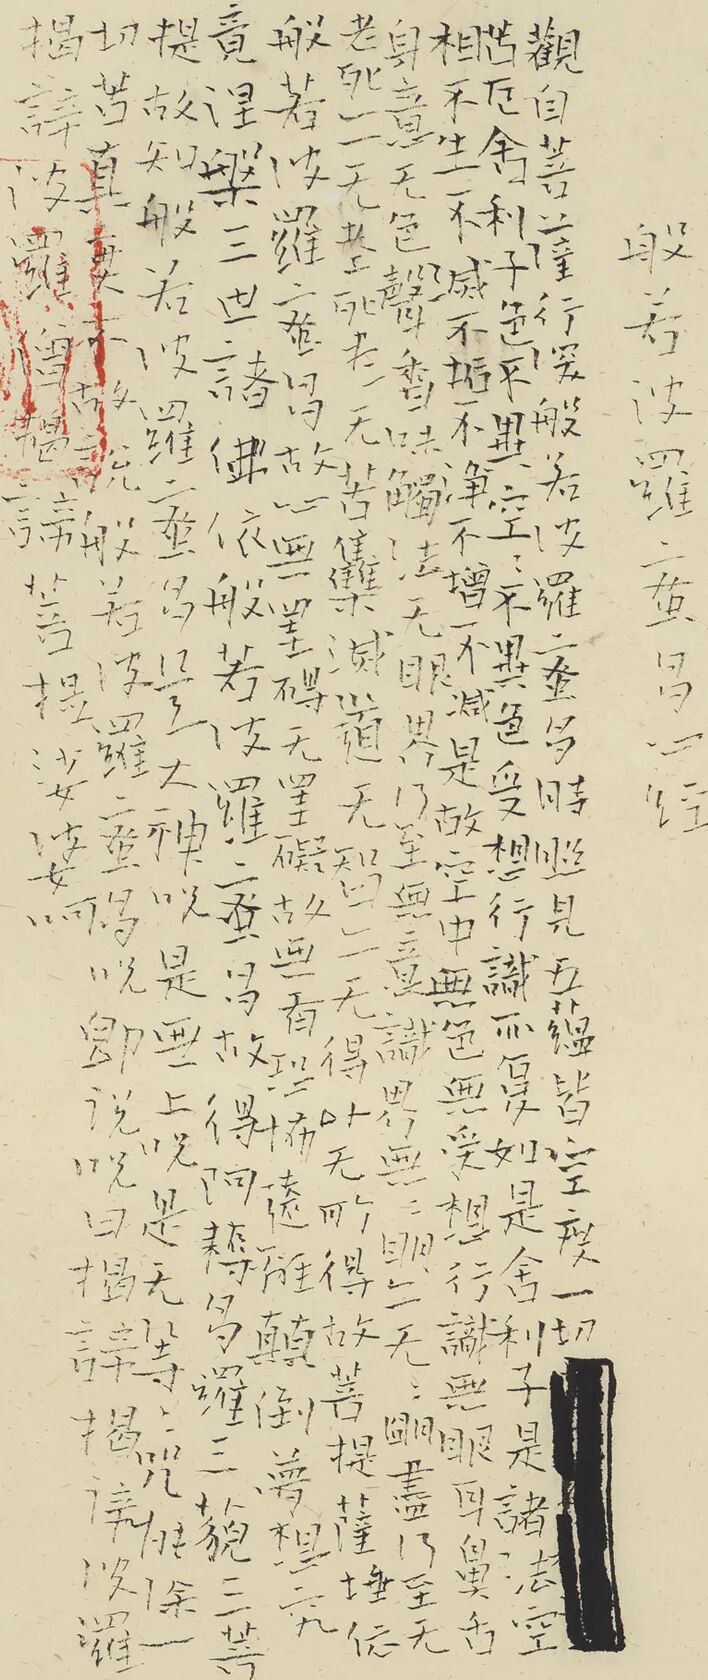 般若波羅蜜多心經
觀自菩薩行深般若波羅蜜多時照見五蘊皆空度一切
苦厄舍利子色不異空〻不異色受想行識亦復如是舍利子是諸法空
相不生不滅不垢不淨不增不減是故空中無色無受想行識無眼耳鼻舌
身意无色聲香味觸法无眼界乃至無意識界無〻明亦无〻明盡乃至无
老死亦无老死盡无苦集滅道无智亦无得以无所得故菩提薩埵依
般若波羅蜜多故心無罣碍无罣礙故無有恐怖遠離顛倒夢想究
竟涅槃三世諸佛依般若波羅蜜多故得阿耨多羅三藐三菩
提故知般若波羅蜜多是大神呪是無上呪是无等〻咒能除一
切苦真實不故說般若波羅蜜多呪即説呪曰揭諦揭諦波羅
揭諦波羅僧揭諦菩提娑婆呵